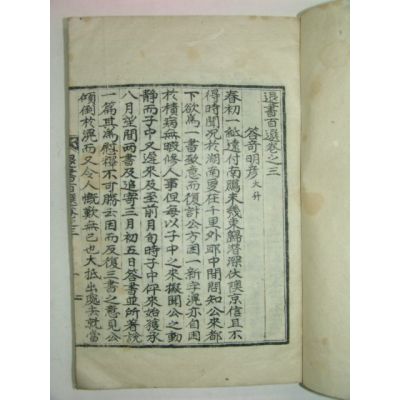 退書百選卷之三
答奇明彦 大升
春初一紙遠付南鵬未幾東歸屛深伏陜京信且不
得時聞况於湖南更在千里外耶中間聞知公來都
下欲爲一書致意而復計公方困一新字滉亦自困
於積病無暇修人事但每以子中之來擬聞公之動
靜而子中又遲來及至前月旬時子中仰來始獲承
八月望間兩書及追寄三月初五日答書並所著說
一篇其爲慰釋不可勝云因而反復三書之意見公
傾倒於滉而又令人慨歎無已也大抵出處去就當
退書百選卷三